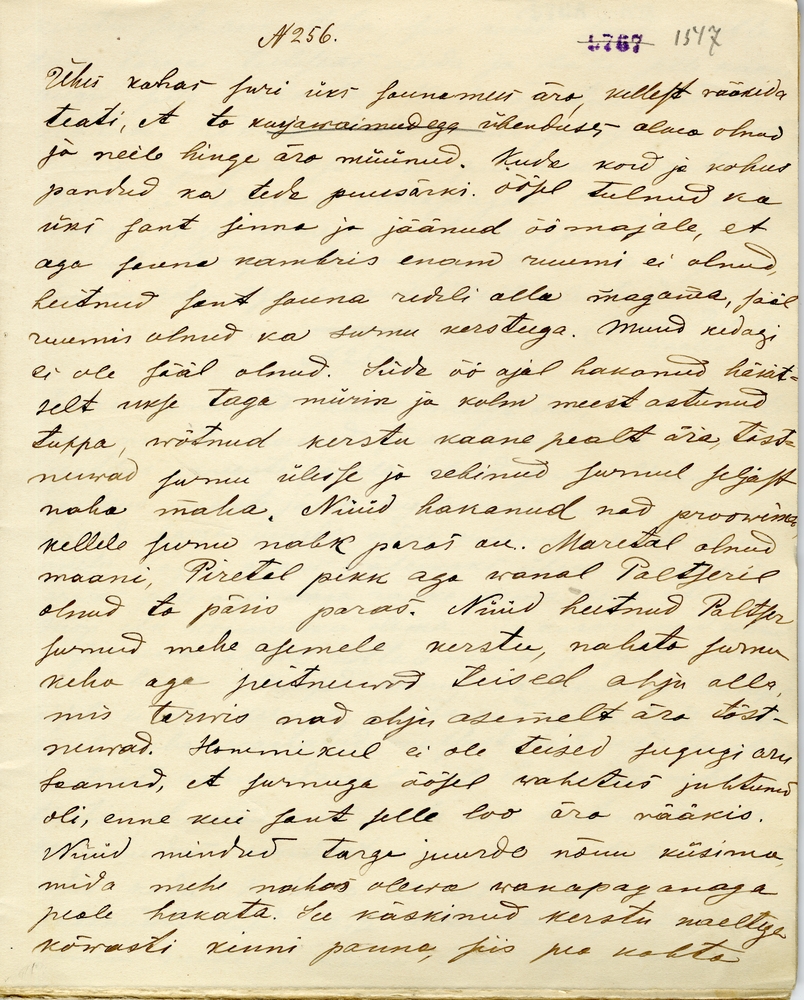 N 256.
1767 1547
Ühes kohas suri üks saunamees ära, kellest rääkida
teati, et ta kurjawaimudega ühenduses olewa olnud
ja neile hinge ära müünud. Kuda kord ja kohus
pandud ka teda puusärki. Öösel tulnud ka
üks sant sinna ja jäänud öömajale, et
aga sauna kambris enam ruumi ei olnud,
heitnud sant sauna redeli alla magama, sääl
ruumis olnud ka surnu kerstuga. Muud kedagi
ei ole sääl olnud. Süda öö ajal hakanud häkit-
selt ukse taga mürin ja kolm meest astunud
tuppa, wõtnud kerstu kaane pealt ära, tõst-
nuwad surnu ülesse ja rebinud surnul seljast
naha maha. Nüüd hakanud nad proowima,
kellele surnu nahk paras on. Maretal olnud
maani, Piretal pikk aga wanal Paltseril
olnud ta päris paras. Nüüd heitnud Paltser
surnud mehe asemele kerstu, nahata surnu
keha aga peitnuwad teised ahju alla,
mis terwis nad ahju asemelt ära tõst-
nuwad. Hommikul ei ole teised sugugi aru
saanud, et surnuga öösel wahetus juhtunud
oli, enne kui sant selle loo ära rääkis.
Nüüd mindud targa juurde nõuu küsima,
mida mehe nahas olewa wanapaganaga
peale hakata. See käskinud kerstu naeltega
kõwasti kinni panna, siis pea kohta